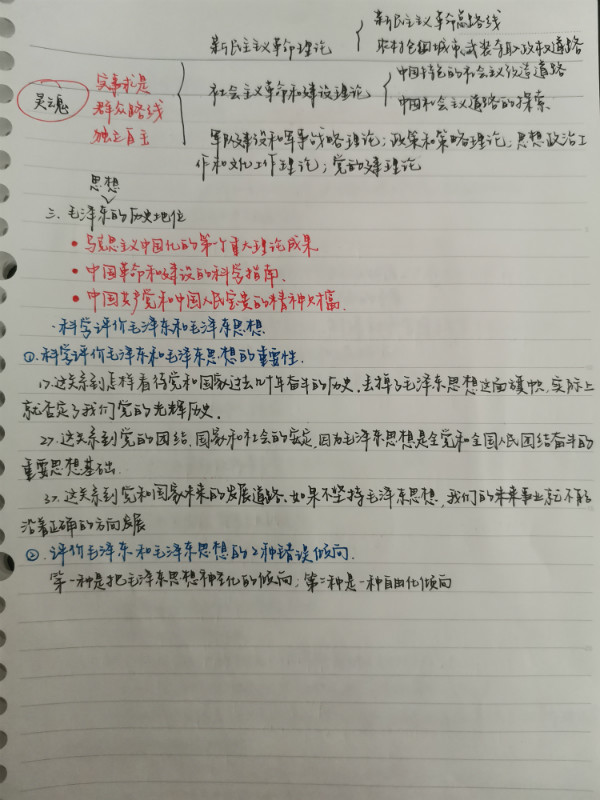 新民主主义革命总路线
新民主主义革命理论
农村包围城市,武装夺取政权道路
中国特色的社会主义改造道路
实事求是
灵魂
群众路线
社会主义革命和建设理论
中国社会主义道路的探索
独立自主
军队建设和军事战略理论;政策和策略理论;思想政治工
作和文化工作理论;党的建理论
思想
三、毛泽东的历史地位
• 马克思主义中国化的第一个重大理论成果
• 中国革命和建设的科学指南.
• 中国共产党和中国人民宝贵的精神财富.
·科学评价毛泽东和毛泽东思想
①.科学评价毛泽东和毛泽东思想的重要性.
1>.这关系到怎样看待党和国家过去几十年奋斗的历史.丢掉了毛泽东思想这面旗帜,实际上
就否定了我们党的光辉历史.
2>.这关系到党的团结,国家和社会的安定,因为毛泽东思想是全党和全国人民团结奋斗的
重要思想基础.
3>.这关系到党和国家未来的发展道路.如果不坚持毛泽东思想,我们的未来事业就不能
沿着正确的方向发展
②.评价毛泽东和毛泽东思想的2种错误倾向.
第一种是把毛泽东思想神学化的倾向;第二种是一种自由化倾向